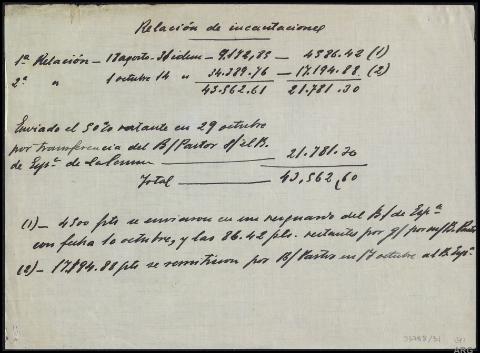 Relación de incautaciones
1ª Relación - 18 agosto - 31 idem - 9.172,85 - 4586.42 (1)
2ª " 1 octubre 14 " 34.389.76 - 17.194.88 (2)
43.562.61 21.781.30
Enviado el 50% restante en 29 octubre
por transferencia del B/Pastor s/el B.
de Espª. de La Coruña 21.781.30
Total 43,562,60
(1) - 4500 pts se enviaron en un resguardo del B/ de Espª
con fecha 10 octubre, y las 86.42 pts. restantes por g/ por
(2) - 17.194.88 pts se remitieron por B/ Pastor en 17 octubre al B. Espª.
ARG